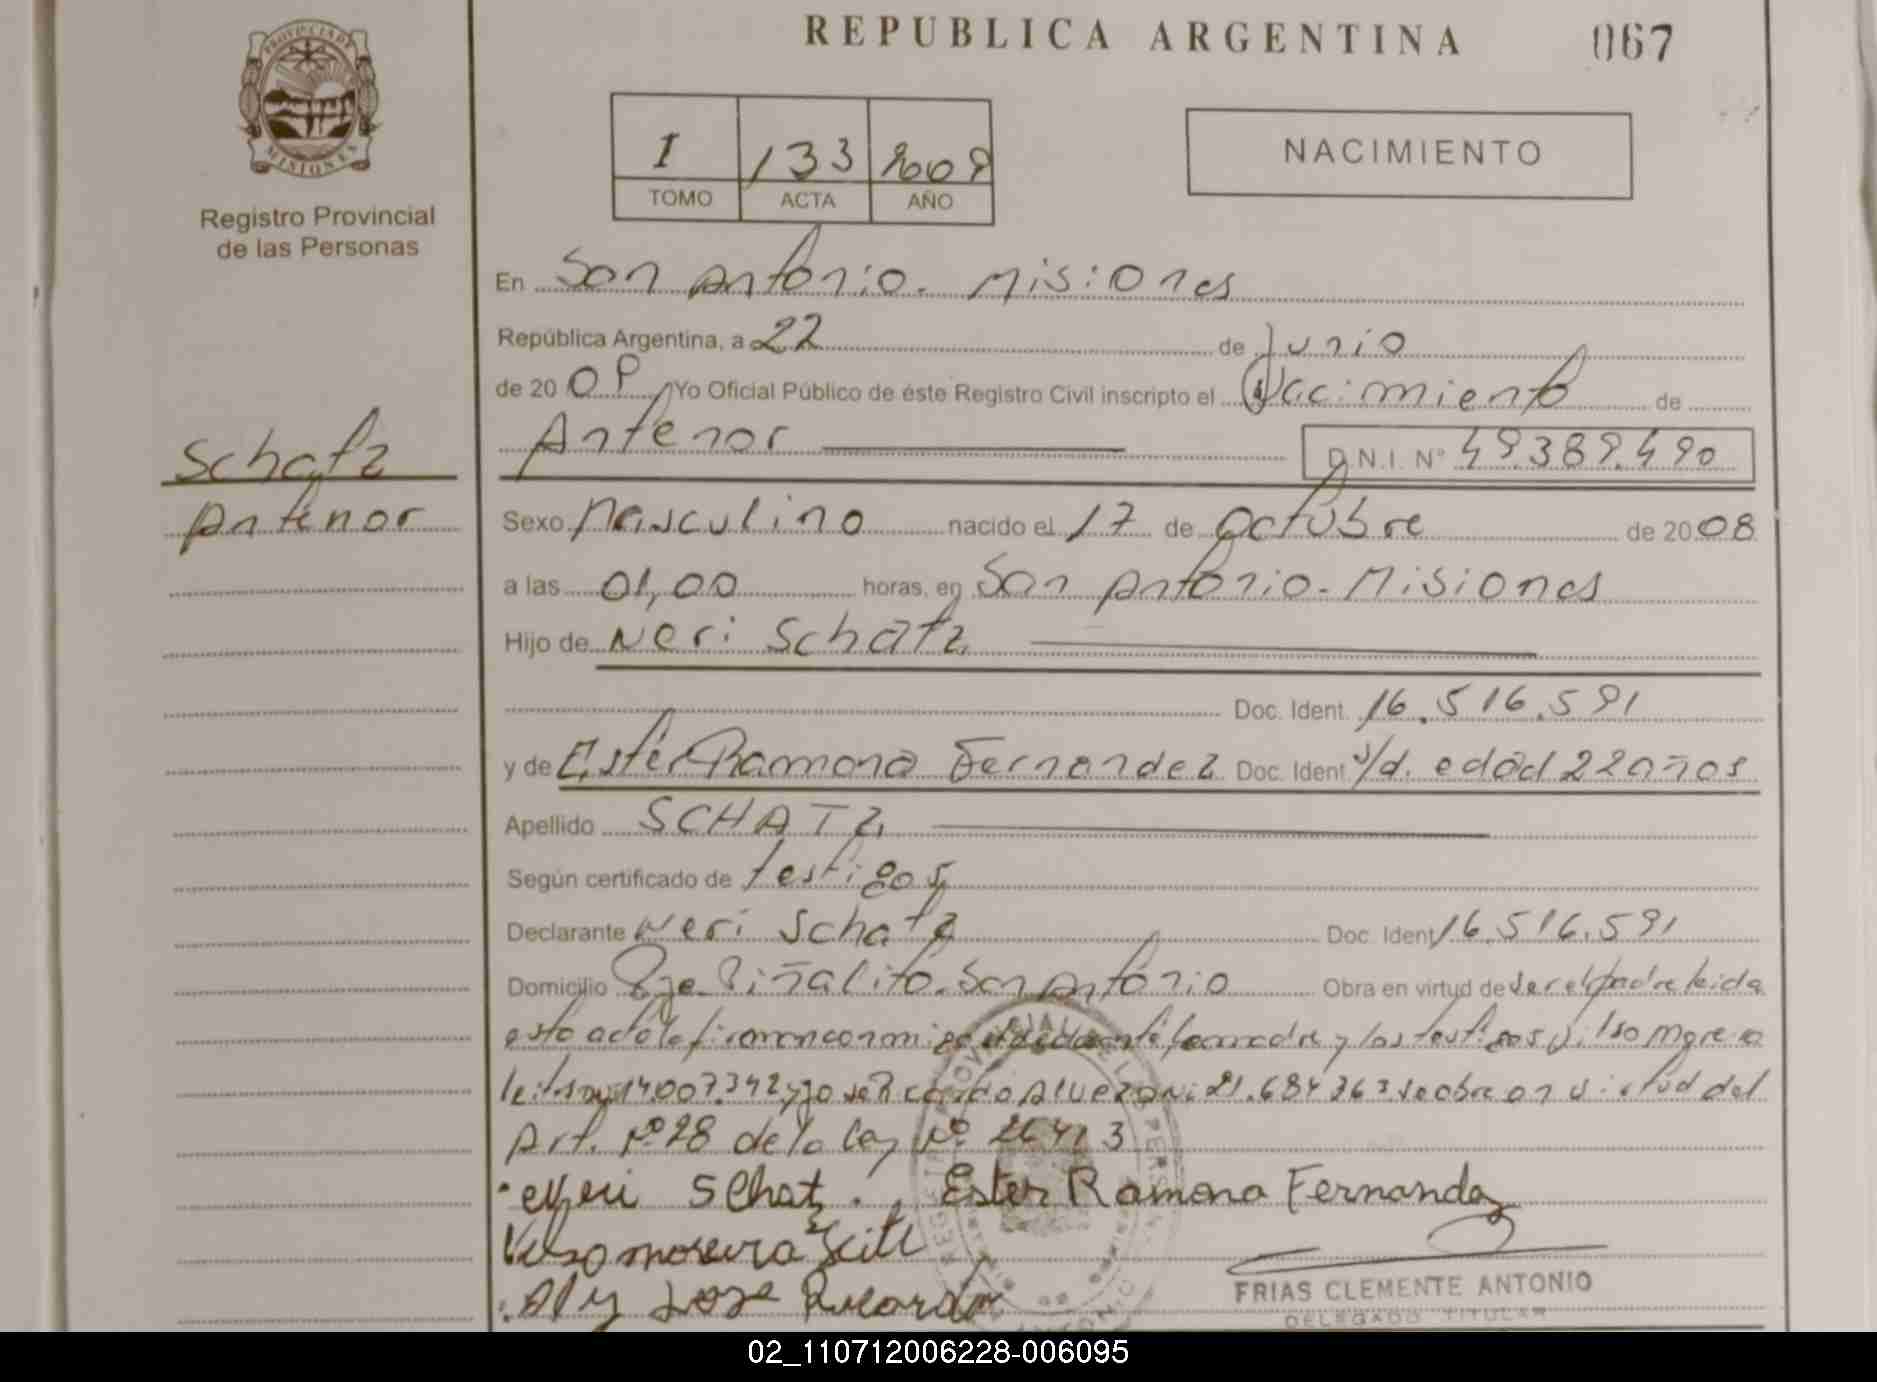 REPUBLICA ARGENTINA
067
PROVINCIA DE
MISIONES
Registro Provincial
de las Personas
I 133 2009
TOMO ACTA AÑO
NACIMIENTO
En San Antonio - Misiones
República Argentina, a 22 de Junio
de 20 09 Yo Oficial Público de éste Registro Civil inscripto el Nacimiento de
Antenor D.N.I. Nº 49.389.490
Schatz
Antenor
Sexo Masculino nacido el 17 de Octubre de 2008
a las 01,00 horas, en San Antonio - Misiones
Hijo de Neri Schatz
Doc. Ident. 16.516.591
y de Ester Ramona Fernandez Doc. Ident s/d. edad 22 años
Apellido SCHATZ
Según certificado de testigos
Declarante Neri Schatz Doc. Ident 16.516.591
Domicilio Pje Piñalito. San Antonio Obra en virtud de ser el padre leida
esta acta la firman conmigo el declarante la madre y los testigos
14.007.342 y Jose Ricardo 21.684 263 se obra en virtud del
Art. Nº 28 de la Ley Nº 26413
Neri SChatz. Ester Ramona Fernandez
moreira
Jose Ricardo
FRIAS CLEMENTE ANTONIO
DELEGADO TITULAR
02_110712006228-006095